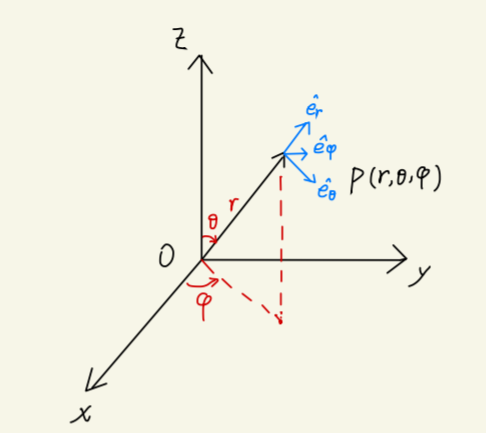 z
êr
êφ
êθ
P(r,θ,φ)
r
θ
O
y
φ
x